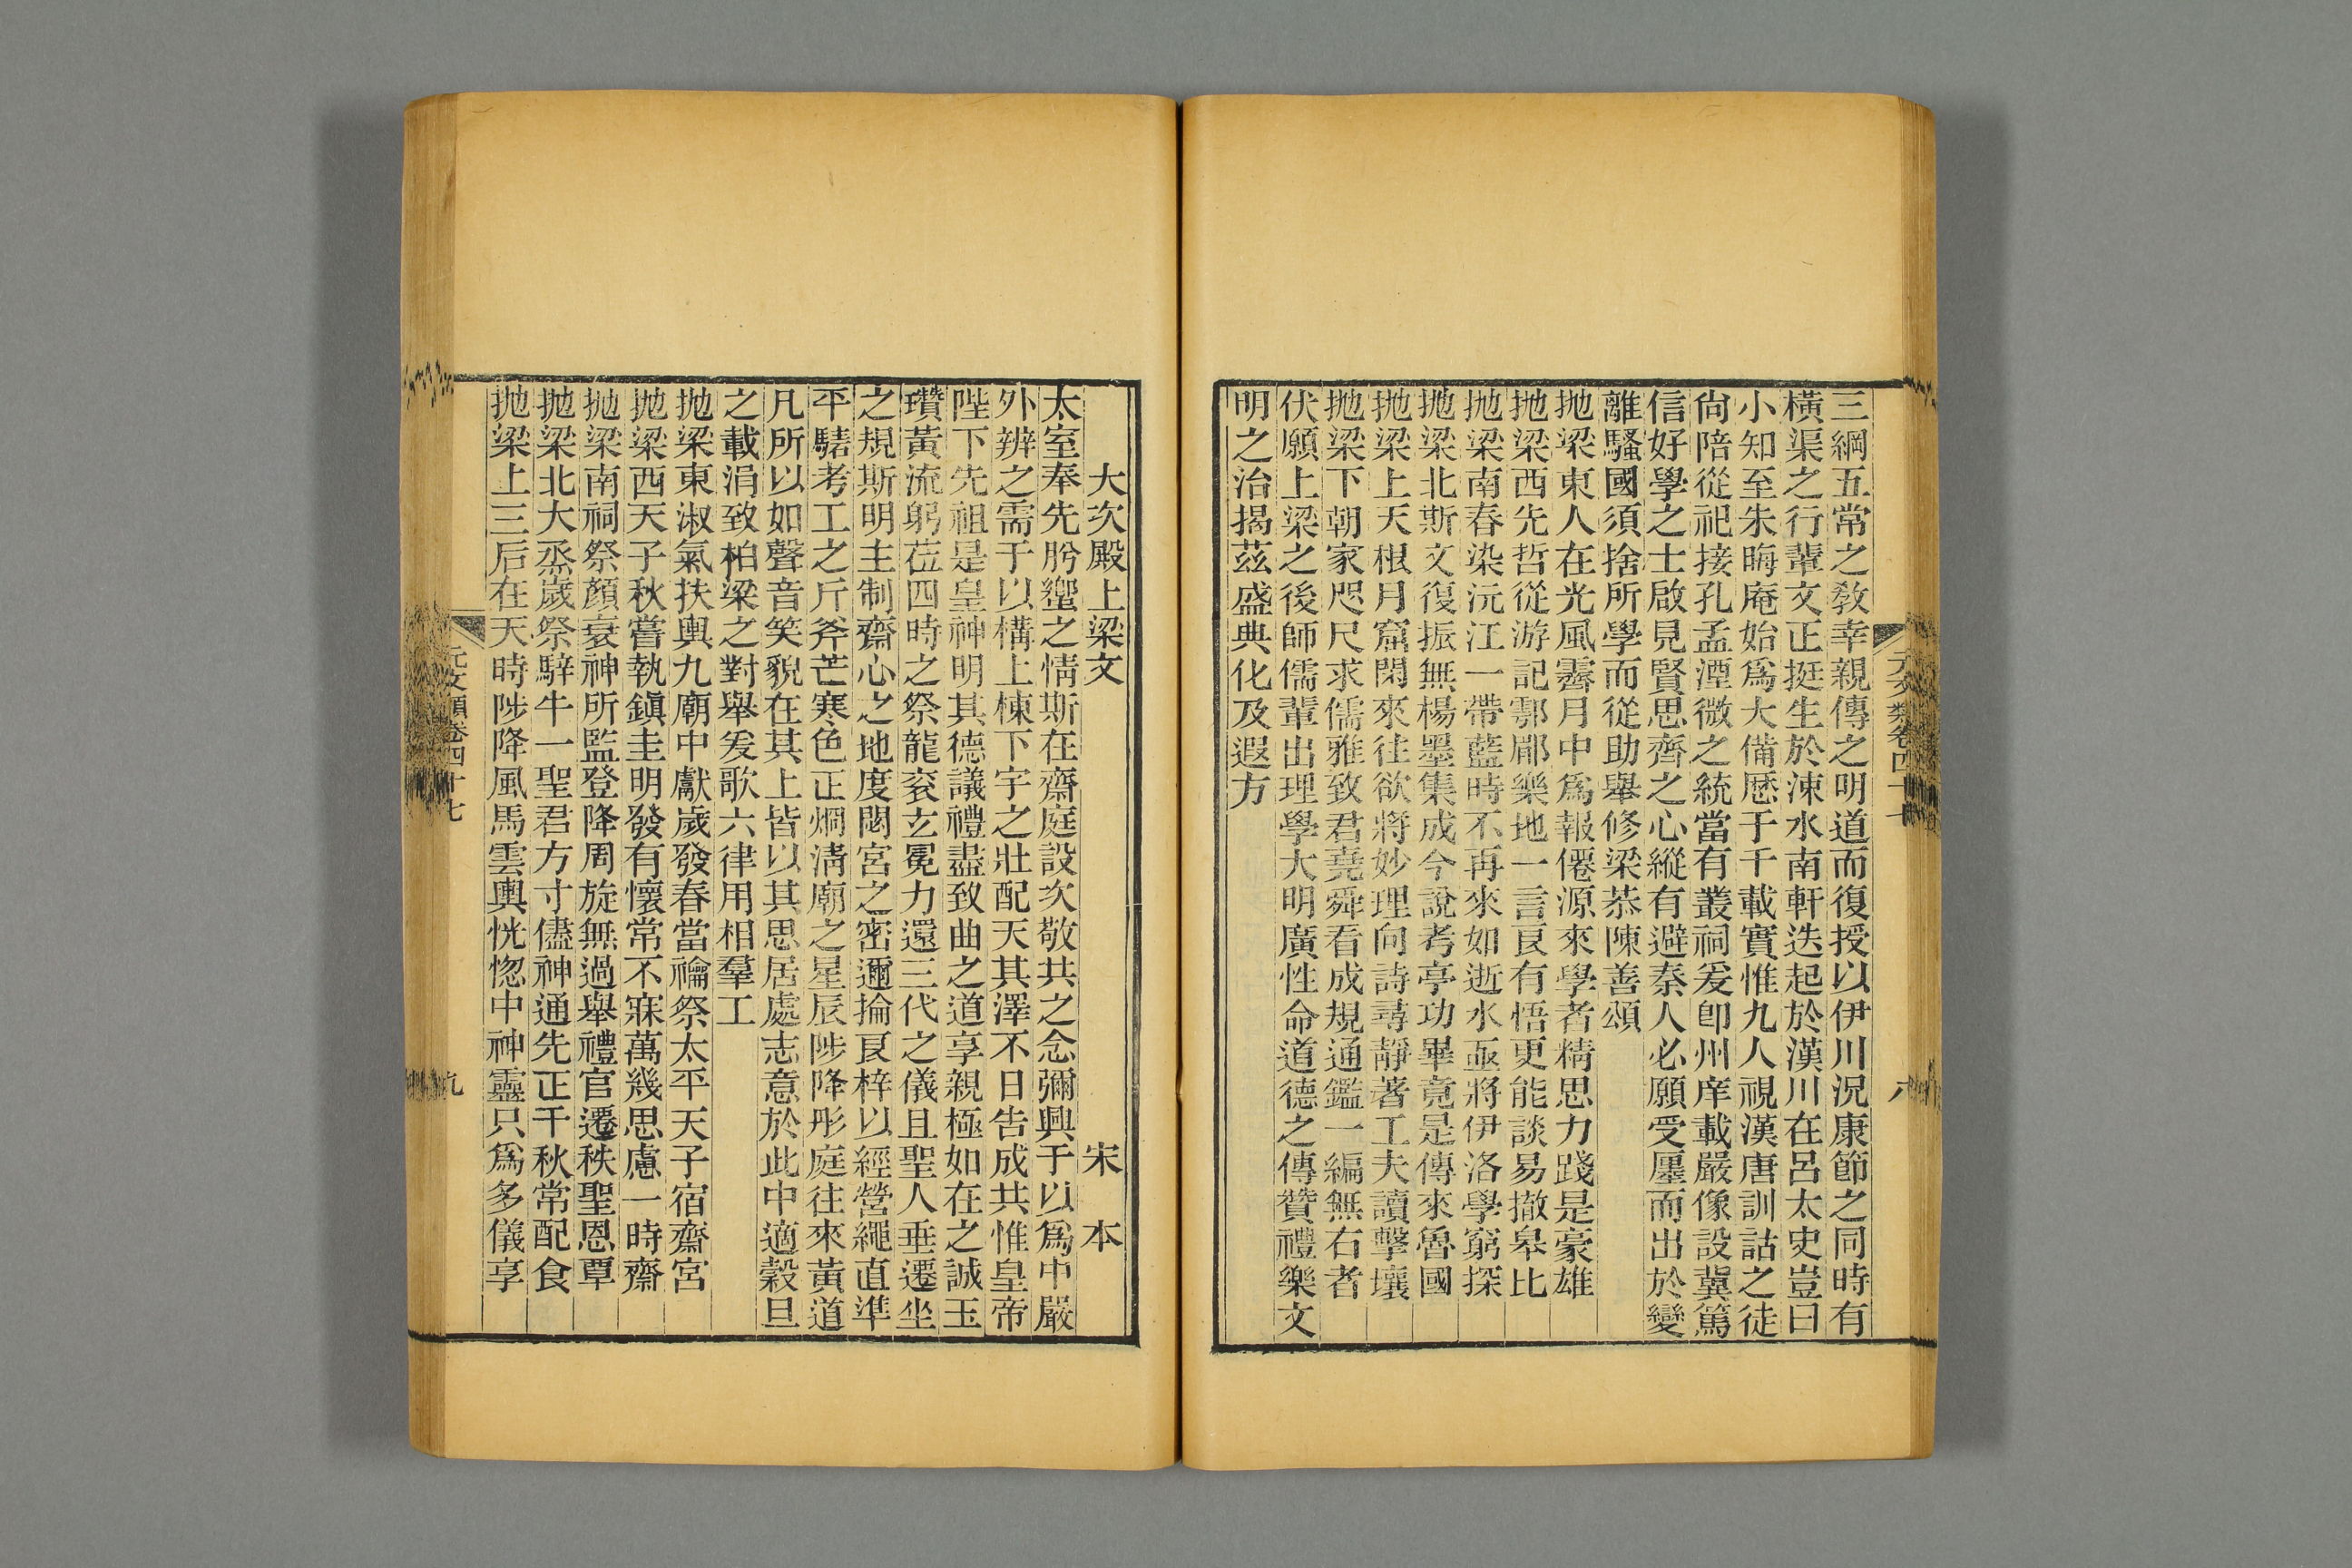 三綱五常之敎幸親傳之明道而復授以伊川況康節之同時有
橫渠之行輩文正挺生於涑水南軒迭起於漢川在呂太史豈曰
小知至朱晦庵始爲大備歷于千載實惟九人視漢唐訓詁之徒
尙陪從祀接孔孟湮微之統當有叢祠爰卽州庠載嚴像設冀篤
信好學之士啟見賢思齊之心縱有避秦人必願受廛而出於變
離騷國須捨所學而從助舉修梁恭陳善頌
抛梁東人在光風霽月中爲報僊源來學者精思力踐是豪雄
抛梁西先哲從游記鄠郿樂地一言良有悟更能談易撤皋比
抛梁南春染沅江一帶藍時不再來如逝水亟將伊洛學窮探
抛梁北斯文復振無楊墨集成今說考亭功畢竟是傳來魯國
抛梁上天根月窟閑來往欲將妙理向詩尋靜著工夫讀擊壤
抛梁下朝家咫尺求儒雅致君堯舜看成規通鑑一編無右者
伏願上梁之後師儒輩出理學大明廣性命道德之傳贊禮樂文
明之治揭茲盛典化及遐方
元文類卷四十七
八
大次殿上梁文 宋本
太室奉先肹蠁之情斯在齋庭設次敬共之念彌興于以爲中嚴
外辨之需于以構上棟下宇之壯配天其澤不日告成共惟皇帝
陛下先祖是皇神明其德議禮盡致曲之道享親極如在之誠玉
瓚黃流躬莅四時之祭龍袞玄冕力還三代之儀且聖人垂遷坐
之規斯明主制齋心之地度閟宮之密邇掄良梓以經營繩直準
平驣考工之斤斧芒寒色正烱淸廟之星辰陟降彤庭往來黃道
凡所以如聲音笑貌在其上皆以其思居處志意於此中適穀旦
之載涓致柏梁之對舉爰歌六律用相羣工
抛梁東淑氣扶輿九廟中獻歲發春當禴祭太平天子宿齋宮
抛梁西天子秋嘗執鎭圭明發有懷常不寐萬幾思慮一時齋
抛梁南祠祭顏衰神所監登降周旋無過舉禮官遷秩聖恩覃
抛梁北大烝歲祭騂牛一聖君方寸儘神通先正千秋常配食
抛梁上三后在天時陟降風馬雲輿恍惚中神靈只爲多儀享
元文類卷四十七
九